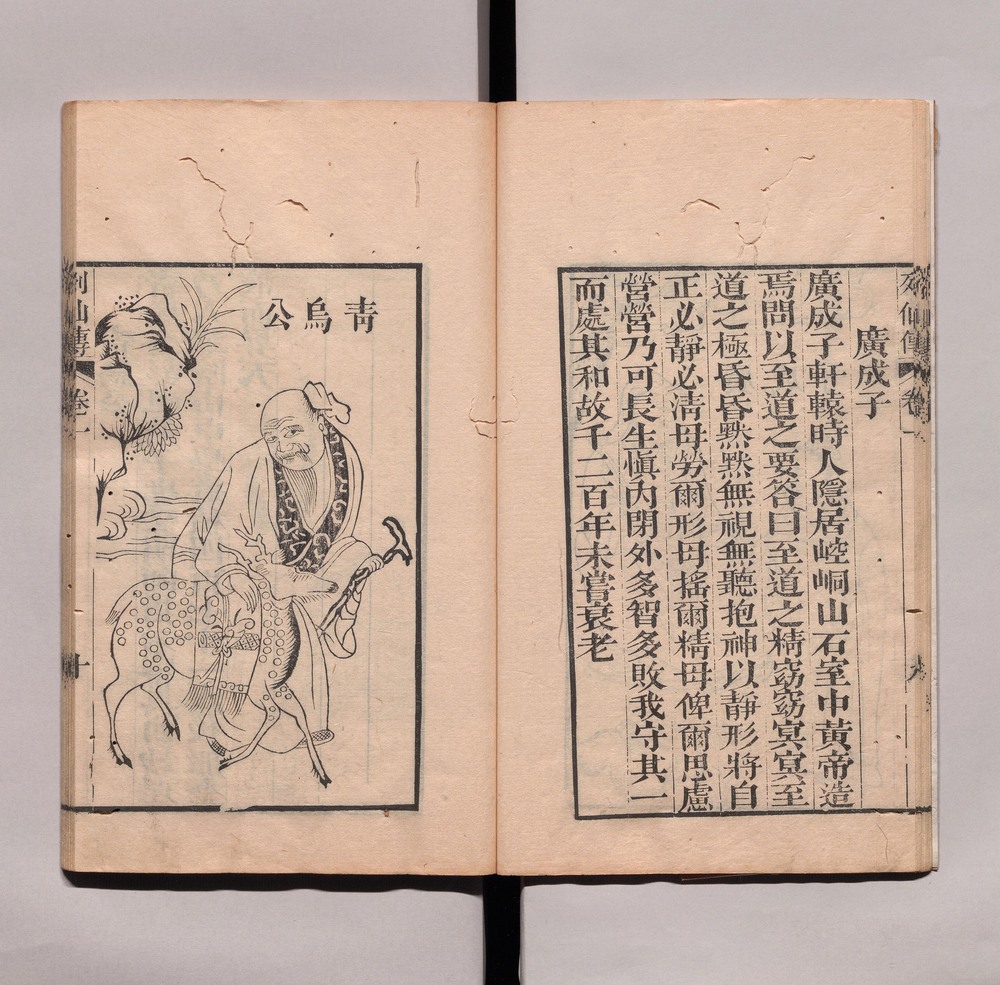 廣成子
廣成子軒轅時人隱居崆峒山石室中黃帝造
焉問以至道之要答曰至道之精窈窈冥冥至
道之極昏昏默默無視無聽抱神以靜形將自
正必靜必淸毋勞爾形毋搖爾精毋俾爾思慮
營營乃可長生愼內閉外多智多敗我守其一
而處其和故千二百年未嘗衰老
靑烏公
列仙傳
卷一
十